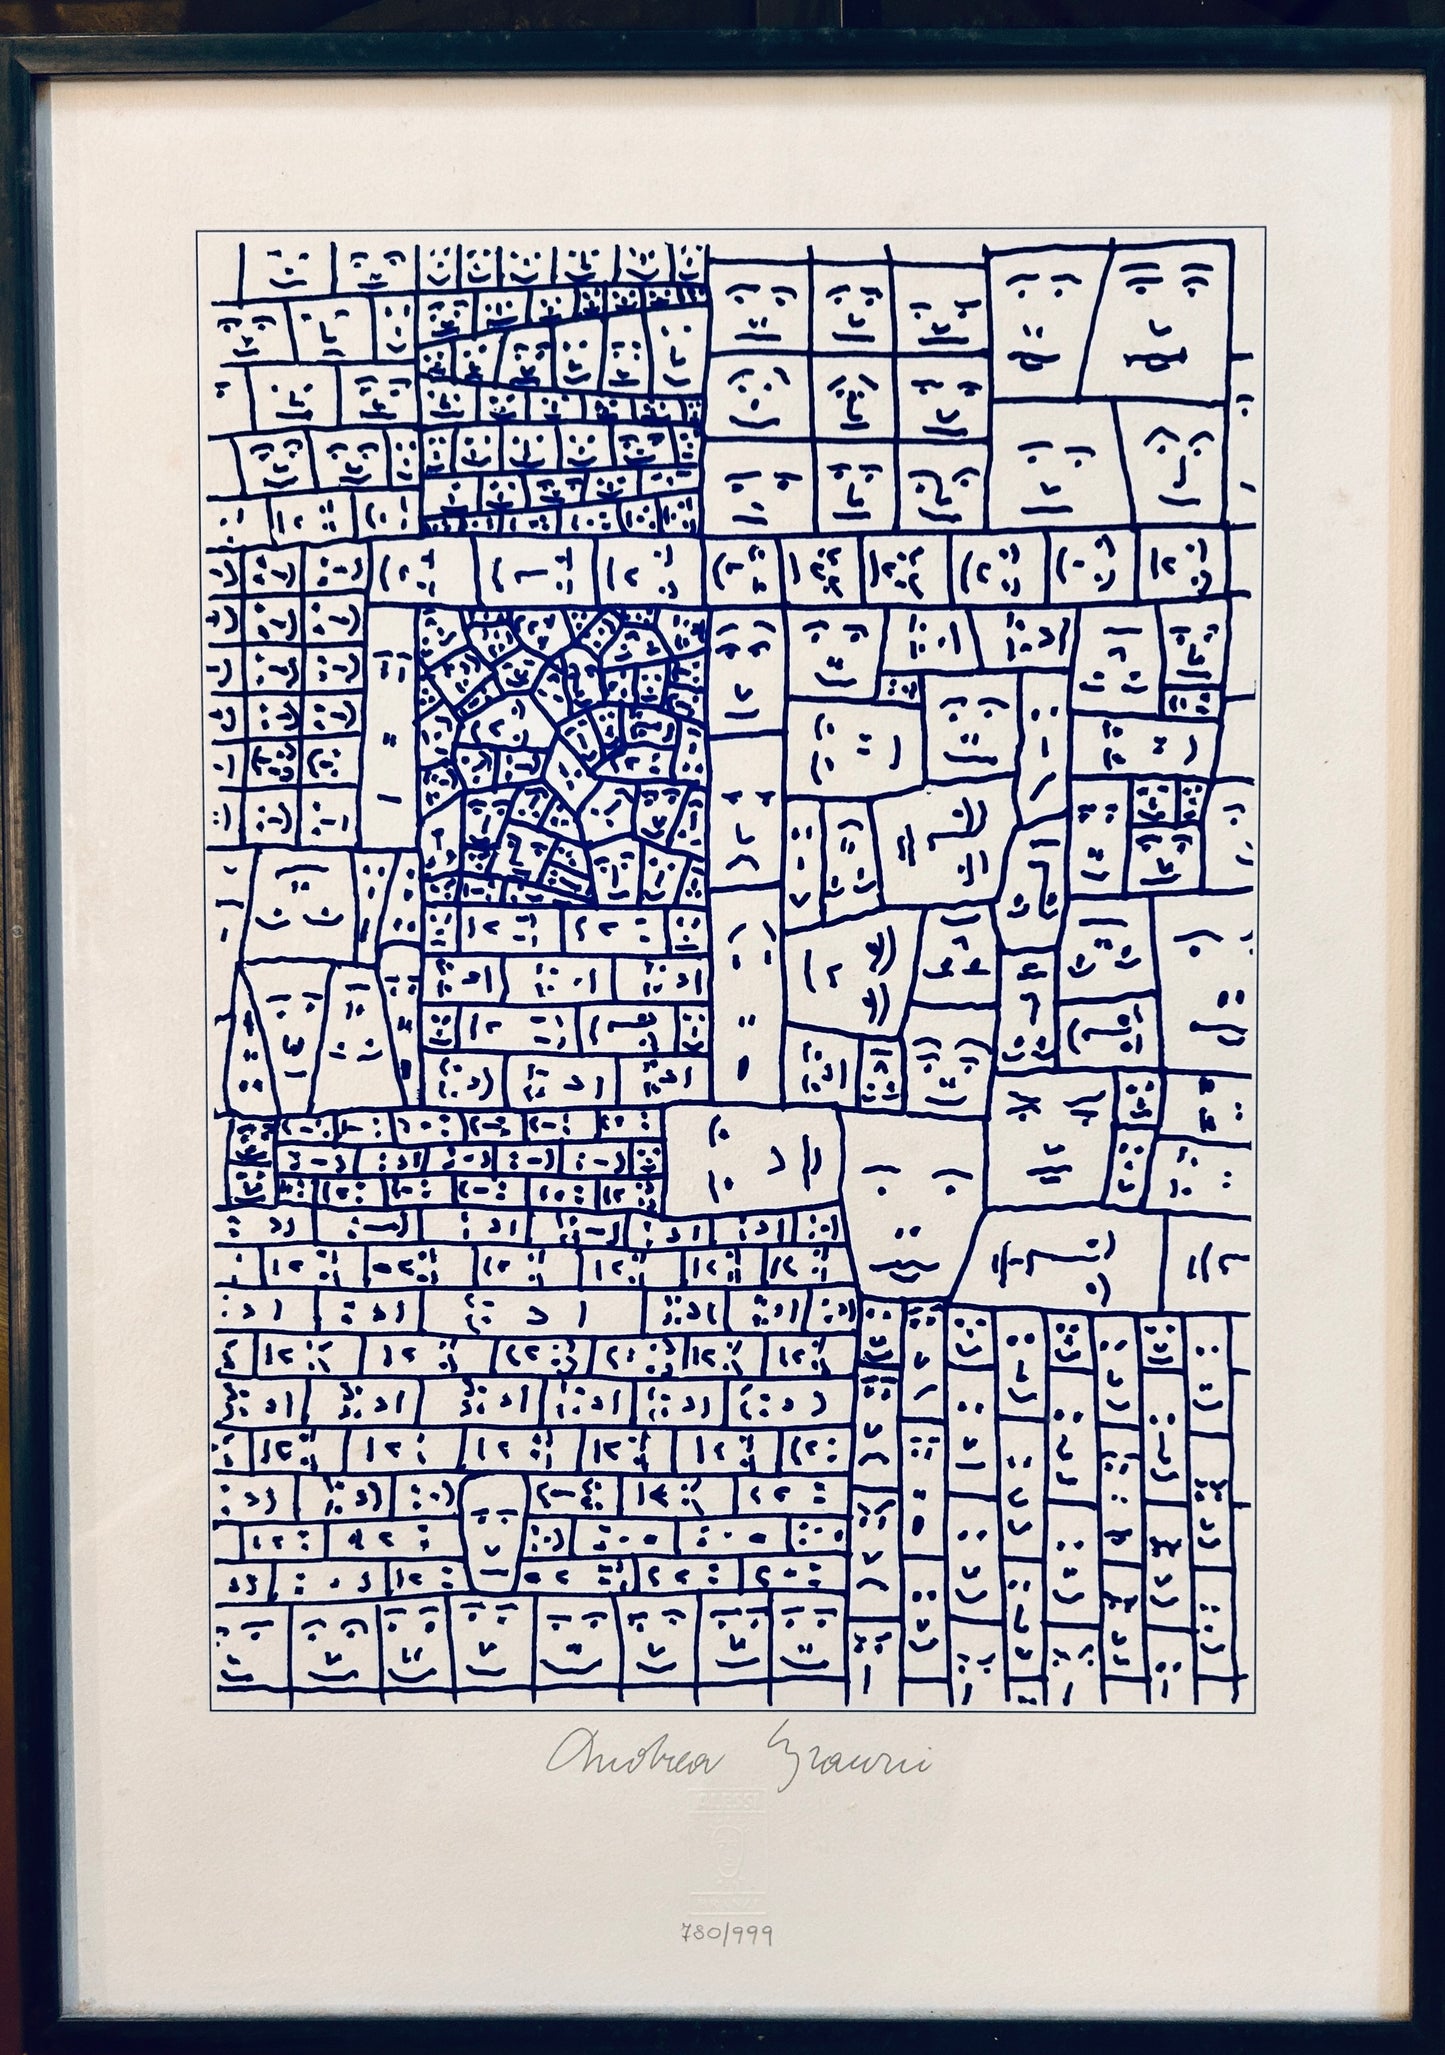 Andrea Branzi
ALESSI
BRANZI
780/999